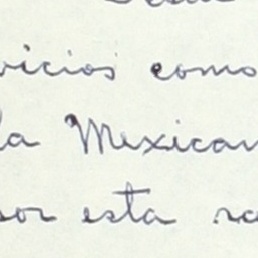 vicios como
la Mexican
por esta ra